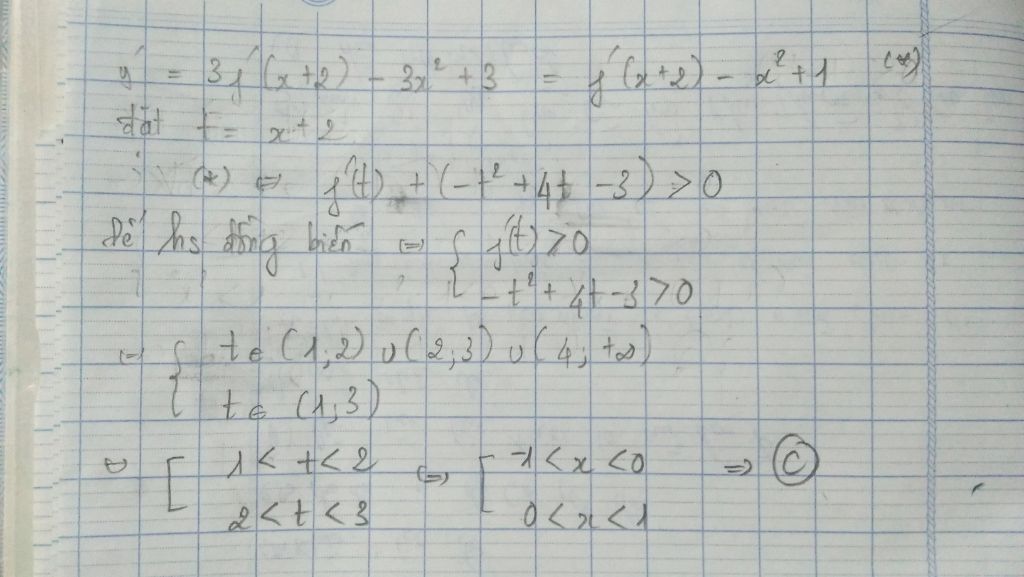 y' = 3f'(x+2) - 3x² + 3 = f'(x+2) - x² + 1 (*)
đặt t = x + 2
(*) ⇔ f'(t) + (-t² + 4t - 3) > 0
Để hs đồng biến ⇔ { f'(t) > 0
-t² + 4t - 3 > 0
⇔ { t ∈ (1;2) ∪ (2;3) ∪ (4;+∞)
t ∈ (1;3)
⇔ [ 1 < t < 2 ⇔ [ -1 < x < 0 ⇒ C
2 < t < 3 0 < x < 1